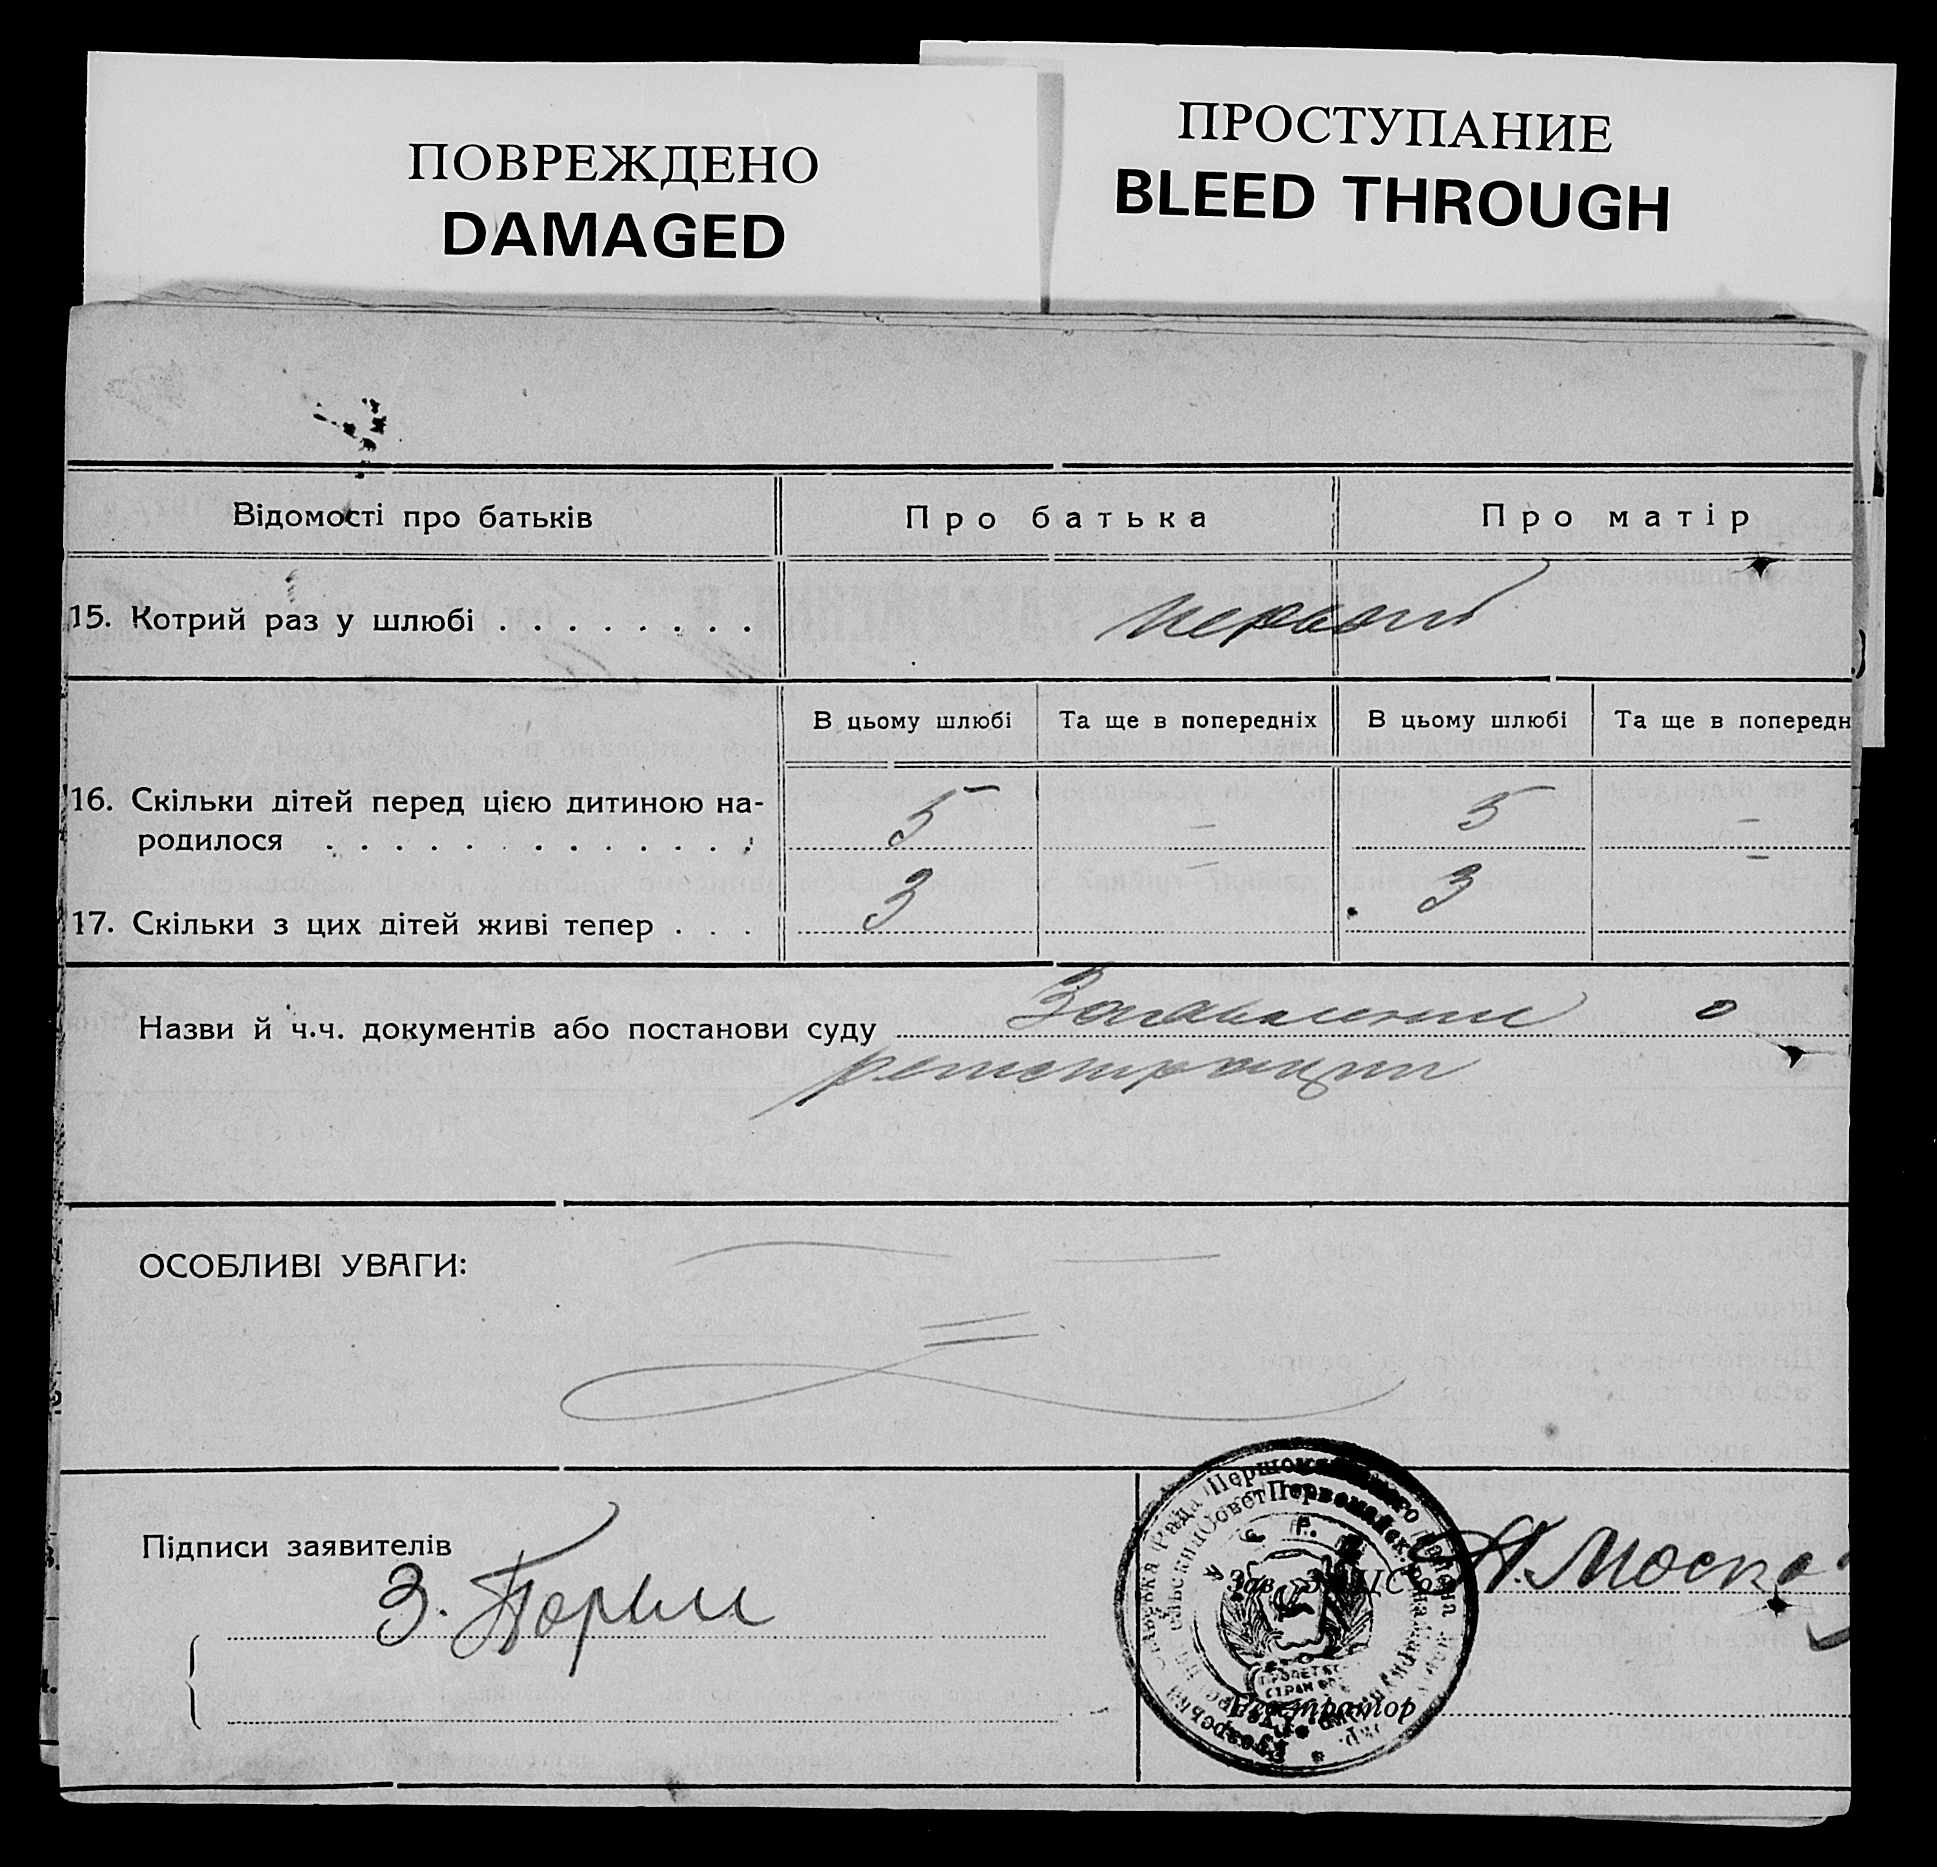 ПОВРЕЖДЕНО
DAMAGED
ПРОСТУПАНИЕ
BLEED THROUGH
Відомості про батьків
Про батька
Про матір
15. Котрий раз у шлюбі . . . . . . . .
первый
В цьому шлюбі
Та ще в попередніх
В цьому шлюбі
Та ще в попередн
16. Скільки дітей перед цією дитиною на-
родилося . . . . . . . . . . . . .
5 – 5 –
17. Скільки з цих дітей живі тепер . . .
3 – 3 –
Назви й ч.ч. документів або постанови суду
о
регистрации
ОСОБЛИВІ УВАГИ:
Підписи заявителів
З.
Зав. ЗАЦС'ом
Реєстратор
Рада Першомайського
Совет Первомайск.
У. С. Р. Р.